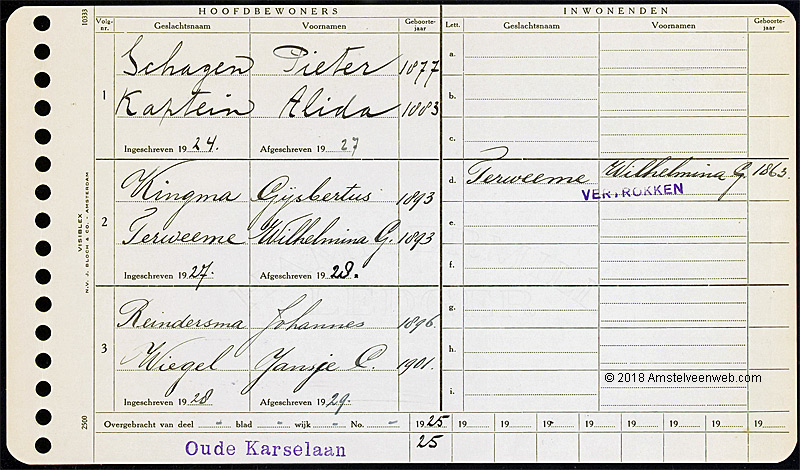 HOOFDBEWONERS INWONENDEN
Volg-nr. Geslachtsnaam Voornamen Geboorte-jaar Lett. Geslachtsnaam Voornamen Geboorte-jaar
10333
1
Schagen Pieter 1877
Kaptein Alida 1883
Ingeschreven 1924. Afgeschreven 1927
a.
b.
c.
2
Kingma Gijsbertus 1893
Terweeme Wilhelmina G. 1893
Ingeschreven 1927. Afgeschreven 1928.
d. Terweeme Wilhelmina G. 1863.
VERTROKKEN
e.
f.
VISIBLEX
N.V. J. BLOCH & CO. - AMSTERDAM
3
Reindersma Johannes 1896.
Wiegel Jansje C. 1901.
Ingeschreven 1928 Afgeschreven 1929.
g.
h.
i.
© 2018 Amstelveenweb.com
2500
Overgebracht van deel - blad - wijk - No. - 1925 19 19 19 19 19 19 19 19
Oude Karselaan 25